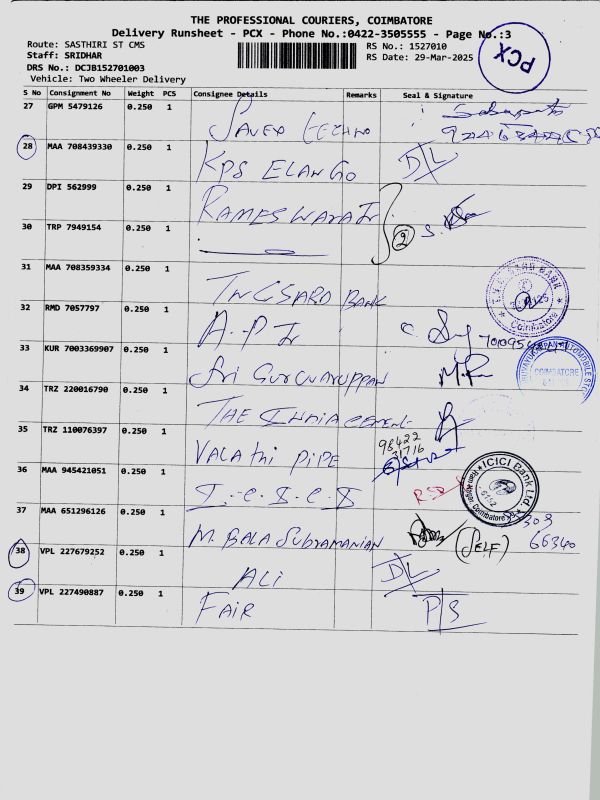 THE PROFESSIONAL COURIERS, COIMBATORE
Delivery Runsheet - PCX - Phone No.:0422-3505555 - Page No.:3
Route: SASTHIRI ST CMS
RS No.: 1527010
Staff: SRIDHAR
RS Date: 29-Mar-2025
DRS No.: DCJB152701003
Vehicle: Two Wheeler Delivery
PCX
S No Consignment No Weight PCS Consignee Details Remarks Seal & Signature
27 GPM 5479126 0.250 1
28 MAA 708439330 0.250 1 KPS ELANGO D/L
29 DPI 562999 0.250 1 RAMESWARA Tr
30 TRP 7949154 0.250 1 2
31 MAA 708359334 0.250 1 BANK
Coimbatore
32 RMD 7057797 0.250 1 A.P Tr
33 KUR 7003369907 0.250 1 Sri Guruvaruppan
COIMBATORE
34 TRZ 220016790 0.250 1 THE India Cement
35 TRZ 110076397 0.250 1 Valathi PIPE 98422
31716
36 MAA 945421051 0.250 1
ICICI Bank Ltd.
Coimbatore
37 MAA 651296126 0.250 1 M. BALA SUBRAMANIAN (SELF) 303
66340
38 VPL 227679252 0.250 1 ALI D/L
39 VPL 227490887 0.250 1 FAIR P/S